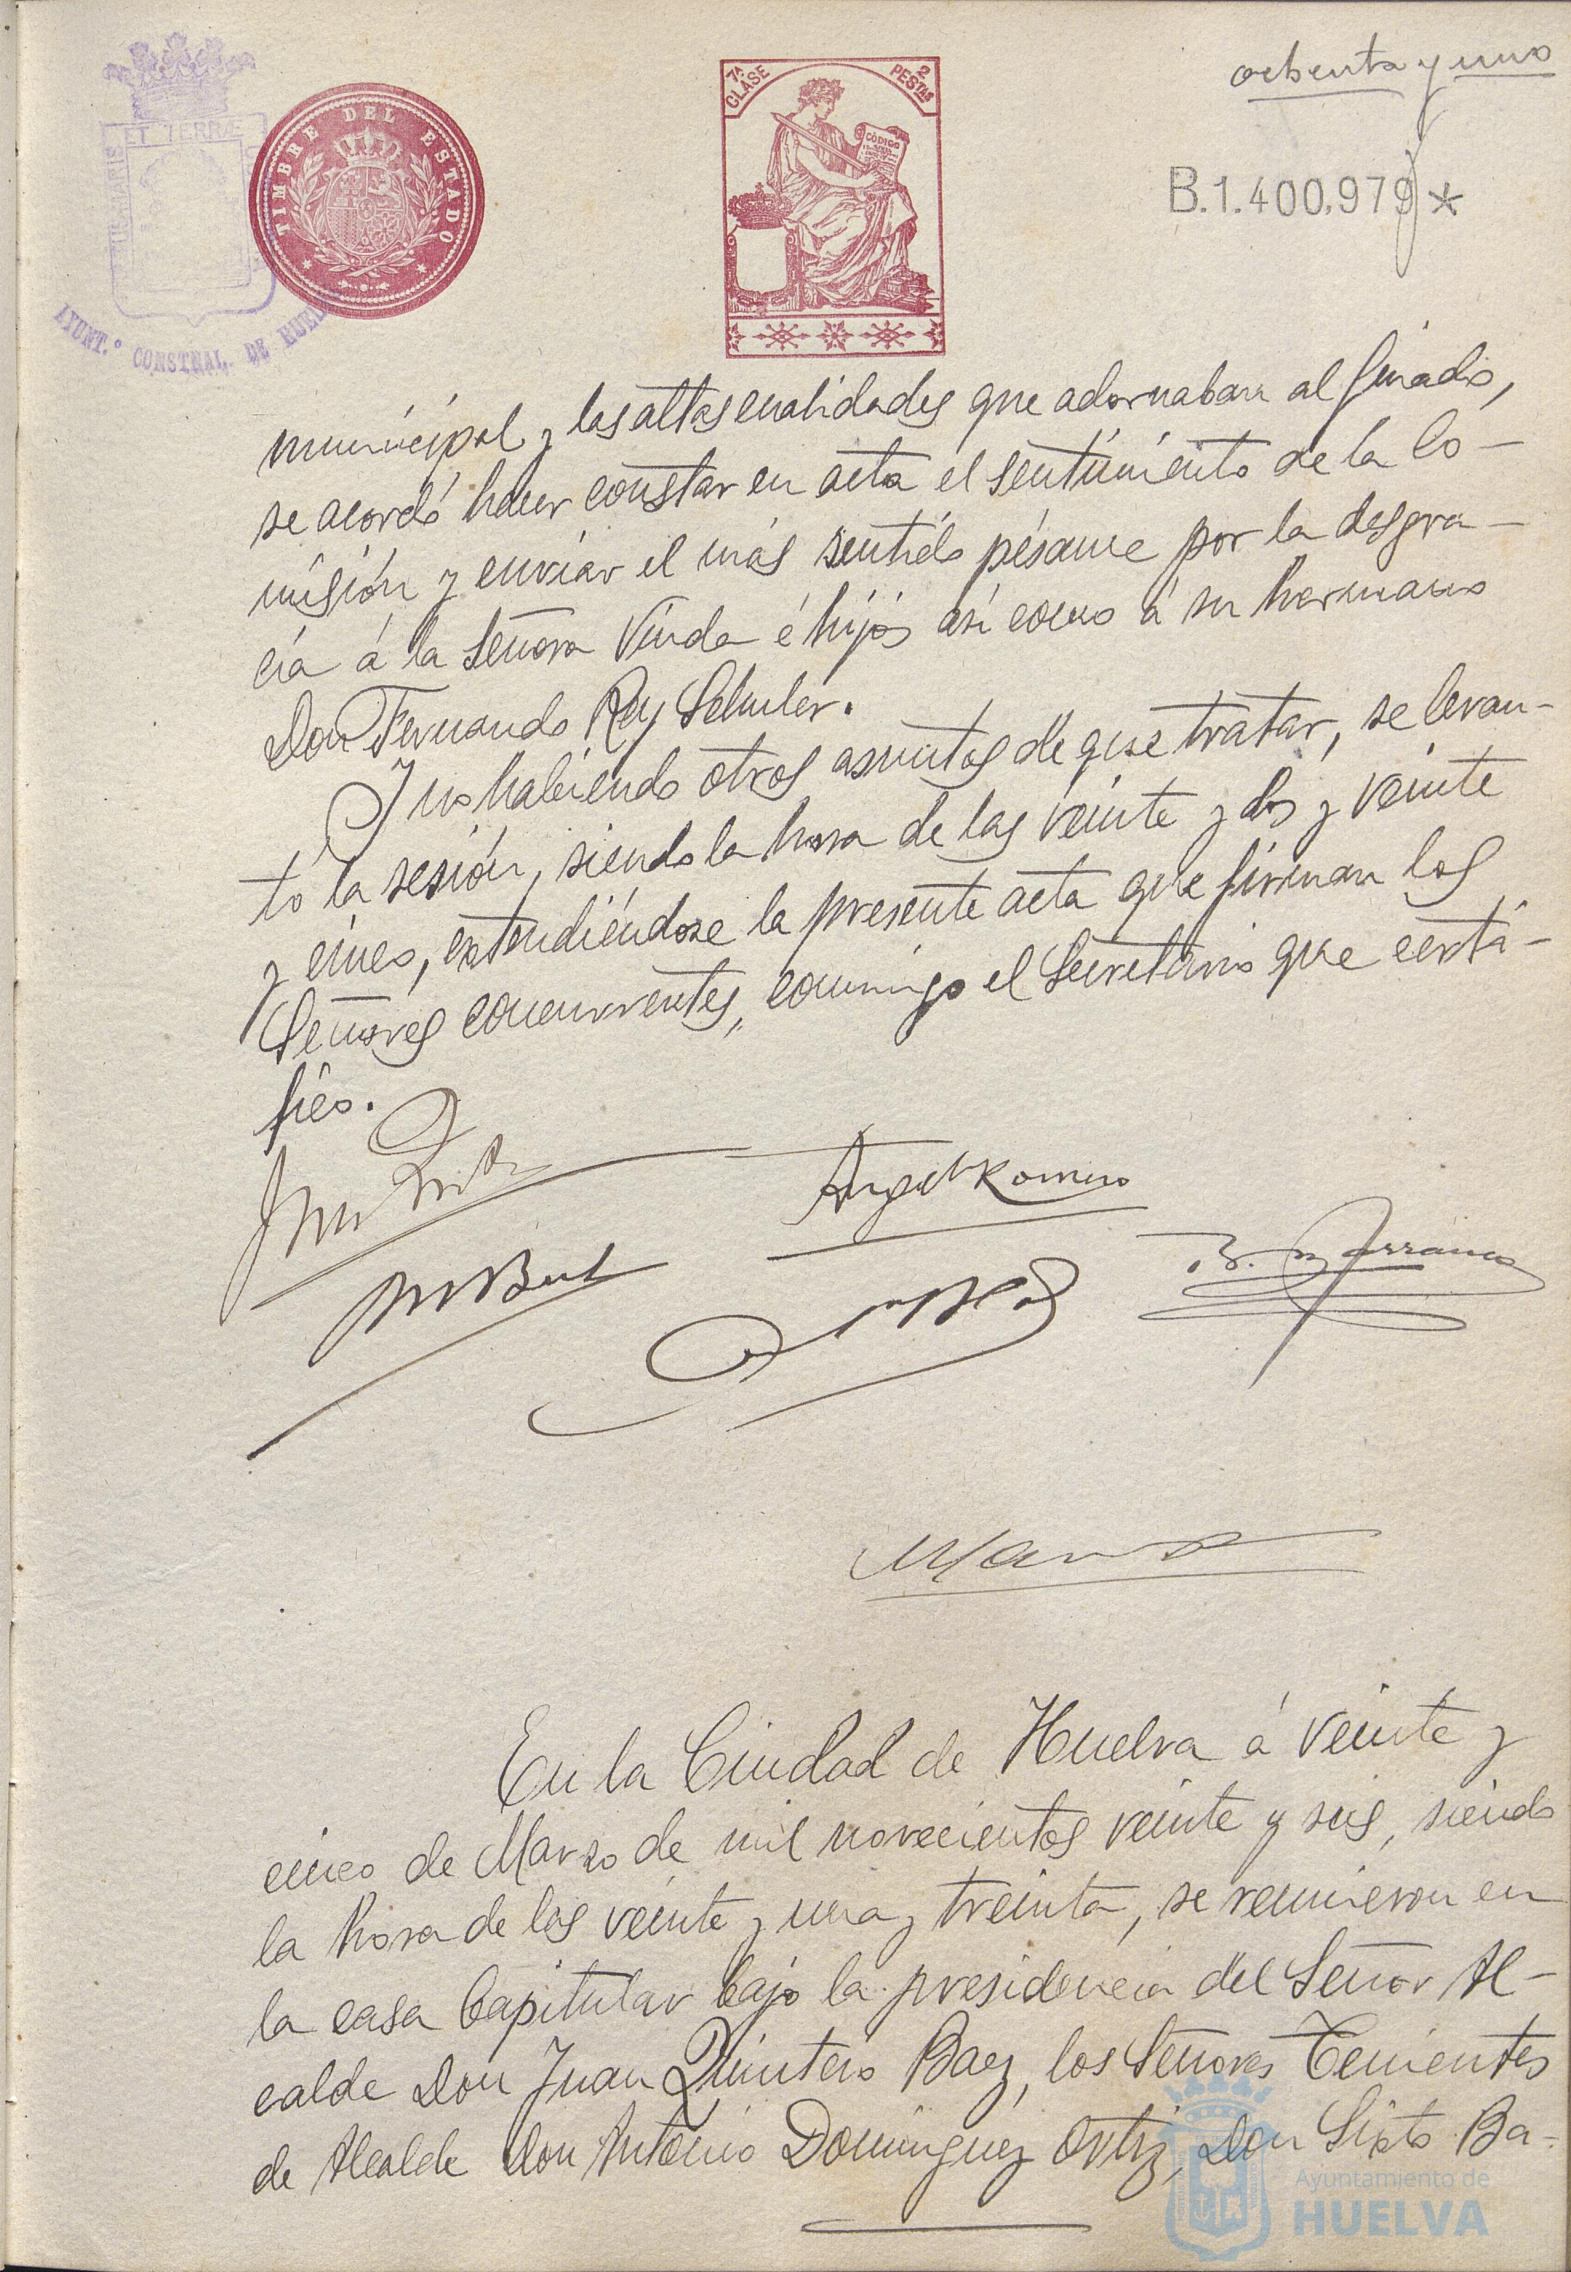 ochenta y uno
7ª CLASE
2 PESTAS
CÓDIGO
TIMBRE DEL ESTADO
ET TERRÆ
AYUNT.º CONSTNAL. DE HUEL
B.1.400.979*
municipal y las altas cualidades que adornaban al finado,
se acordó hacer constar en acta el sentimiento de la Co-
misión y enviar el más sentido pésame por la desgra-
cia á la Señora Viuda é hijos así como á su hermano
Don Fernando Rey Schuler.
Y no habiendo otros asuntos de que tratar, se levan-
tó la sesión, siendo la hora de las veinte y dos y veinte
y cinco, extendiéndose la presente acta que firman los
Señores concurrentes, conmigo el Secretario que certi-
fico.
Angel Romero
En la Ciudad de Huelva á veinte y
cinco de Marzo de mil novecientos veinte y seis, siendo
la hora de las veinte y una y treinta, se reunieron en
la casa Capitular bajo la presidencia del Señor Al-
calde Don Juan Quintero Baez, los Señores Tenientes
de Alcalde Don Antonio Dominguez Ortiz, Don Sixto Ba-
Ayuntamiento de
HUELVA